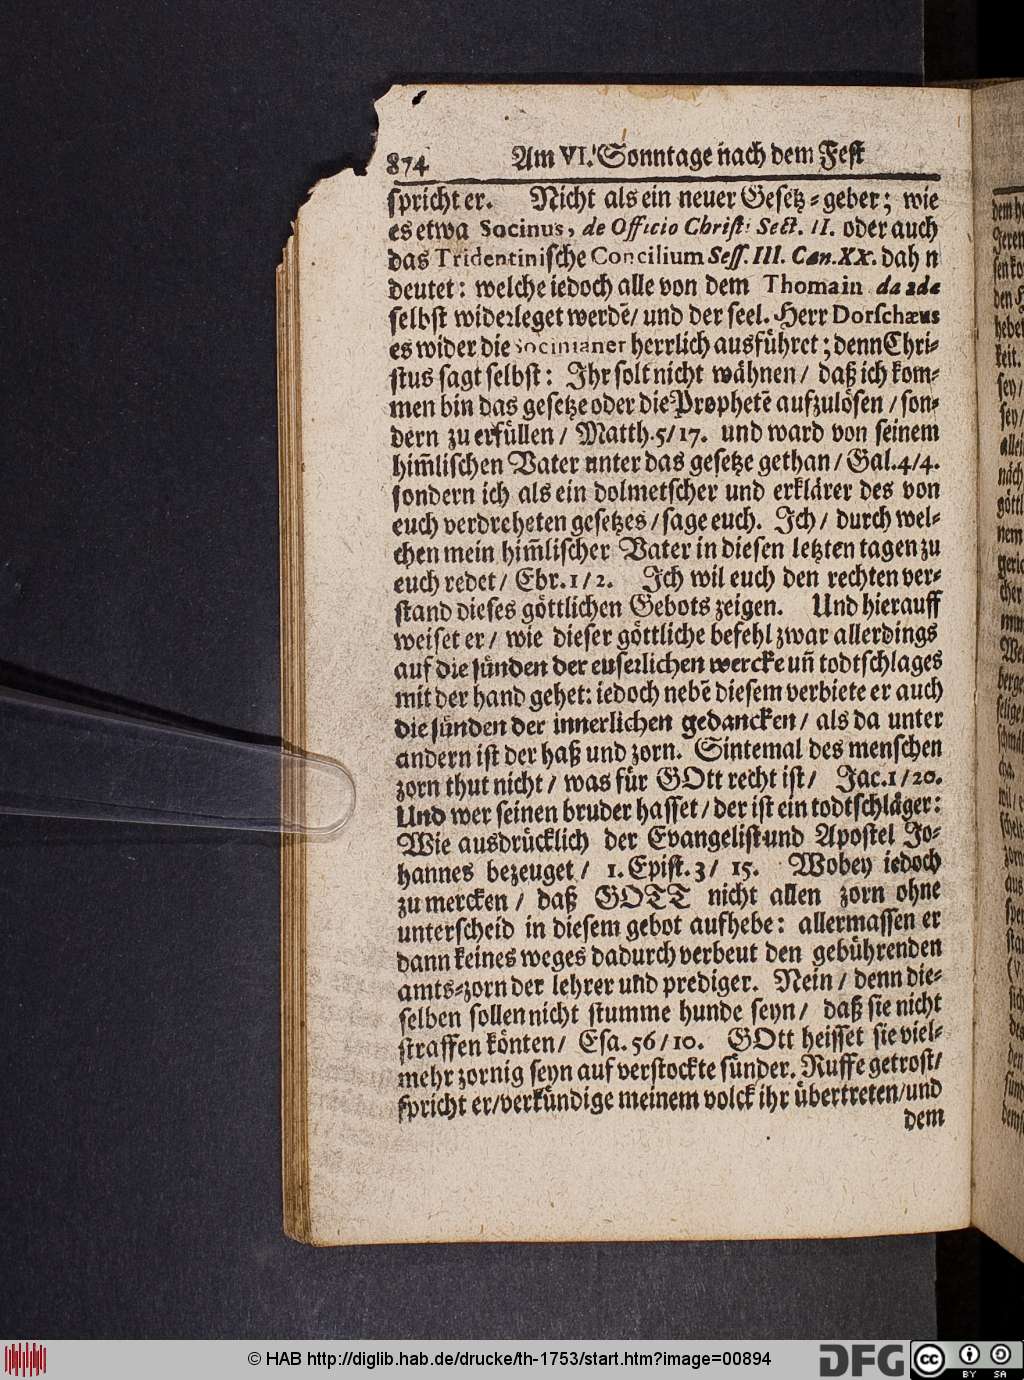 874 Am VI. Sonntage nach dem Fest
spricht er. Nicht als ein neuer Gesetz-geber; wie
es etwa Socinus, de Officio Christi Sect. II. oder auch
das Tridentinische Concilium Sess. III. Can. XX. dah n
deutet: welche iedoch alle von dem Thoma in
selbst widerleget werdē/ und der seel. Herr Dorschæus
es wider die Socinianer herrlich ausführet; denn Chri-
stus sagt selbst: Ihr solt nicht wähnen/ daß ich kom-
men bin das gesetze oder die Prophetē aufzulösen/ son-
dern zu erfüllen/ Matth. 5/17. und ward von seinem
him̄lischen Vater unter das gesetze gethan/ Gal. 4/4.
sondern ich als ein dolmetscher und erklärer des von
euch verdreheten gesetzes/ sage euch. Ich/ durch wel-
chen mein him̄lischer Vater in diesen letzten tagen zu
euch redet/ Ebr. 1/2. Ich wil euch den rechten ver-
stand dieses göttlichen Gebots zeigen. Und hierauff
weiset er/ wie dieser göttliche befehl zwar allerdings
auf die sünden der euserlichen wercke un̄ todtschlages
mit der hand gehet: iedoch nebē diesem verbiete er auch
die sünden der innerlichen gedancken/ als da unter
andern ist der haß und zorn. Sintemal des menschen
zorn thut nicht/ was für GOtt recht ist/ Jac. 1/20.
Und wer seinen bruder hasset/ der ist ein todtschläger:
Wie ausdrücklich der Evangelist und Apostel Jo-
hannes bezeuget/ 1. Epist. 3/ 15. Wobey iedoch
zu mercken/ daß GOTT nicht allen zorn ohne
unterscheid in diesem gebot aufhebe: allermassen er
dann keines weges dadurch verbeut den gebührenden
amts-zorn der lehrer und prediger. Nein/ denn die-
selben sollen nicht stumme hunde seyn/ daß sie nicht
straffen könten/ Esa. 56/10. GOtt heisset sie viel-
mehr zornig seyn auf verstockte sünder. Ruffe getrost/
spricht er/ verkündige meinem volck ihr übertreten/ und
dem
© HAB http://diglib.hab.de/drucke/th-1753/start.htm?image=00894
DFG
CC BY SA